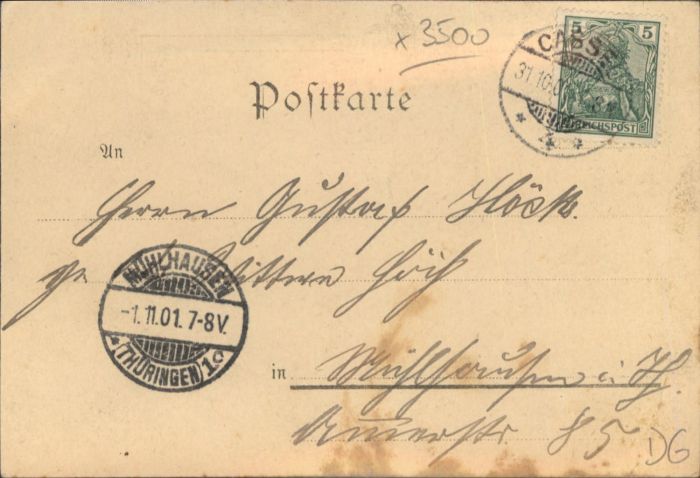 x 3500
5 5
REICHSPOST
CASSEL
31.10.0
Postkarte
An
Herrn Gustav Höck
Wittwe Höck
MÜHLHAUSEN
-1.11.01. 7-8V.
(THÜRINGEN) 1c
in Mühlhausen i. Th.
85
DG